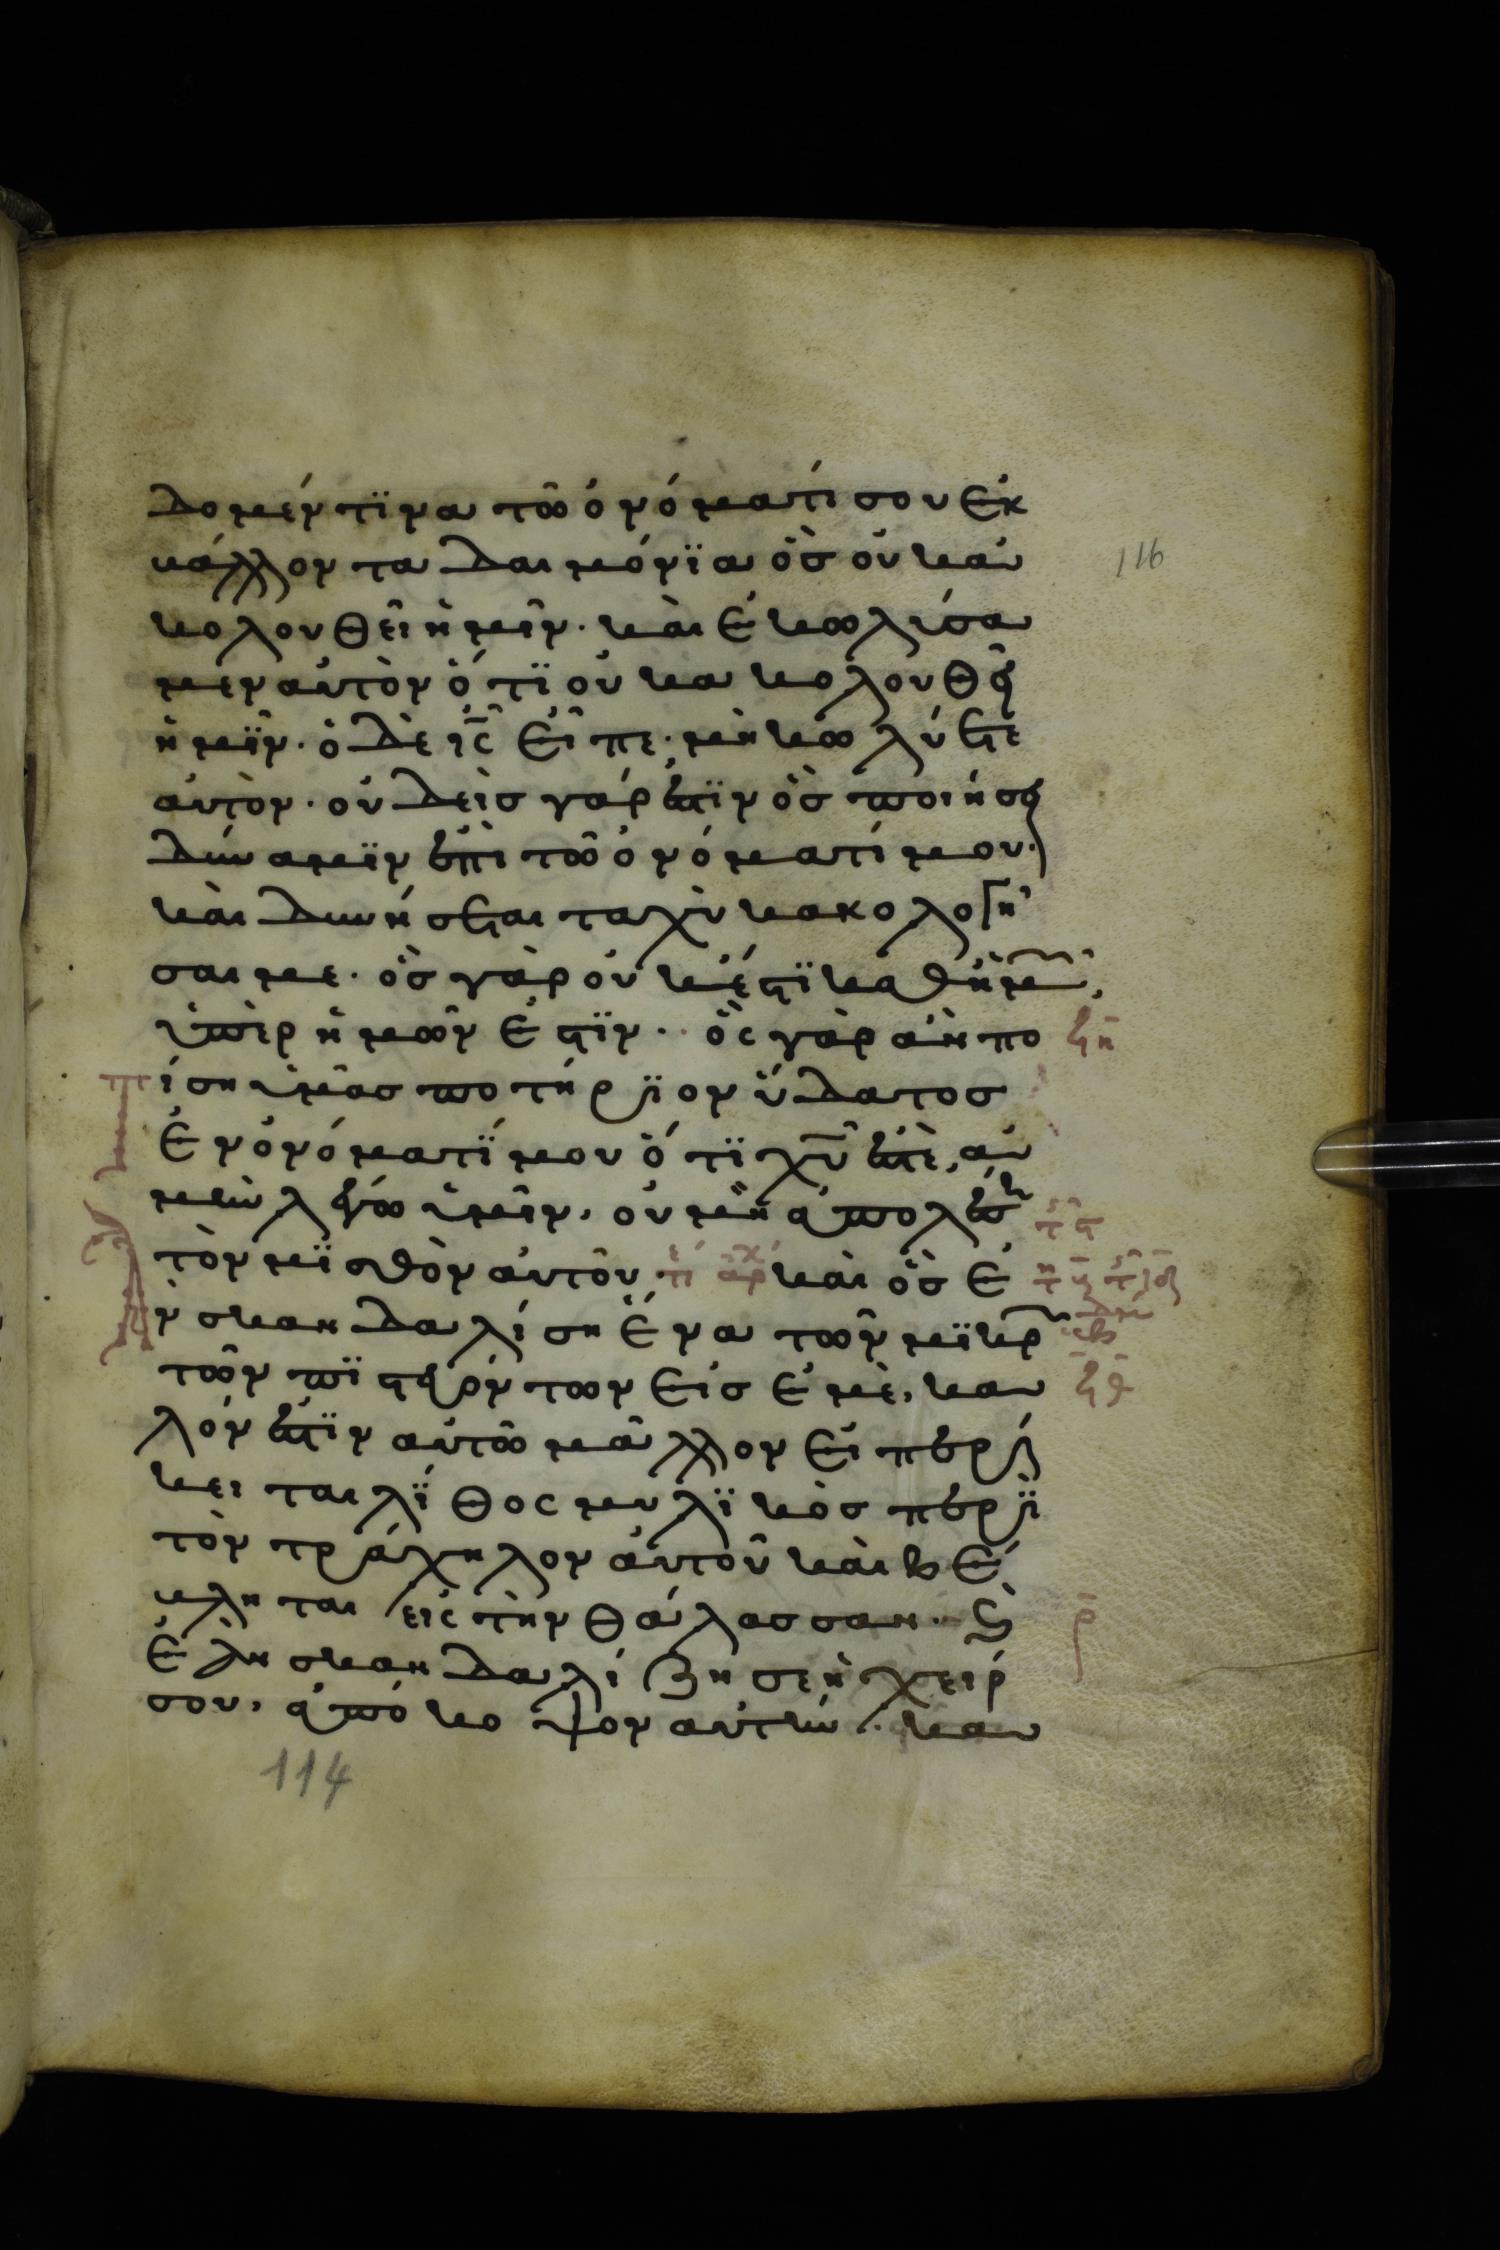 δομέν τϊνα τῶ ὀνόματί σου ἐκ
βάλλοντα δαιμόνϊα ὃς οὐκ ἀ
κολουθεῖ ἡμῖν. καὶ ἐκωλύσα
μεν αὐτὸν ὅτϊ οὐκ ἀκολουθεῖ
ἡμῖν. ὁ δὲ ις̅ εἶπε. μὴ κωλύετε
αὐτον. οὐδεὶς γάρ ἐστϊν ὃς ποιήσει
δύναμϊν ἐπὶ τῶ ὀνόματί μου.
καὶ δυνήσεται ταχὺ κακολογῆ
σαι με. ὃς γὰρ οὐκ ἔστϊ καθ ἡμῶν,
ὑπὲρ ἡμῶν ἐστϊν. ὃς γὰρ ἂν πο
τίση ὑμᾶς ποτήρϊον ὕδατος
ἐν ὀνόματϊ μου ὅτϊ χυ̅ ἐστὲ, ἀ
μὴν λέγω ὑμῖν, οὐ μὴ ἀπολέση
τὸν μϊσθὸν αὐτοῦ, καὶ ὃς ἐ
ὰν σκανδαλίση ἕνα τῶν μϊκρῶν
τῶν πϊστευόντων εἰς ἐμὲ, κα
λόν ἐστϊν αὐτῶ μᾶλλον εἰ περί
κειται λίθος μυλϊκὸς περὶ
τὸν τράχηλον αὐτοῦ καὶ βέ
βληται εἰς τὴν θάλασσαν. καὶ
ἐὰν σκανδαλίζη σε ἡ χείρ
σου, ἀπόκοψον αὐτήν. κα
116
114